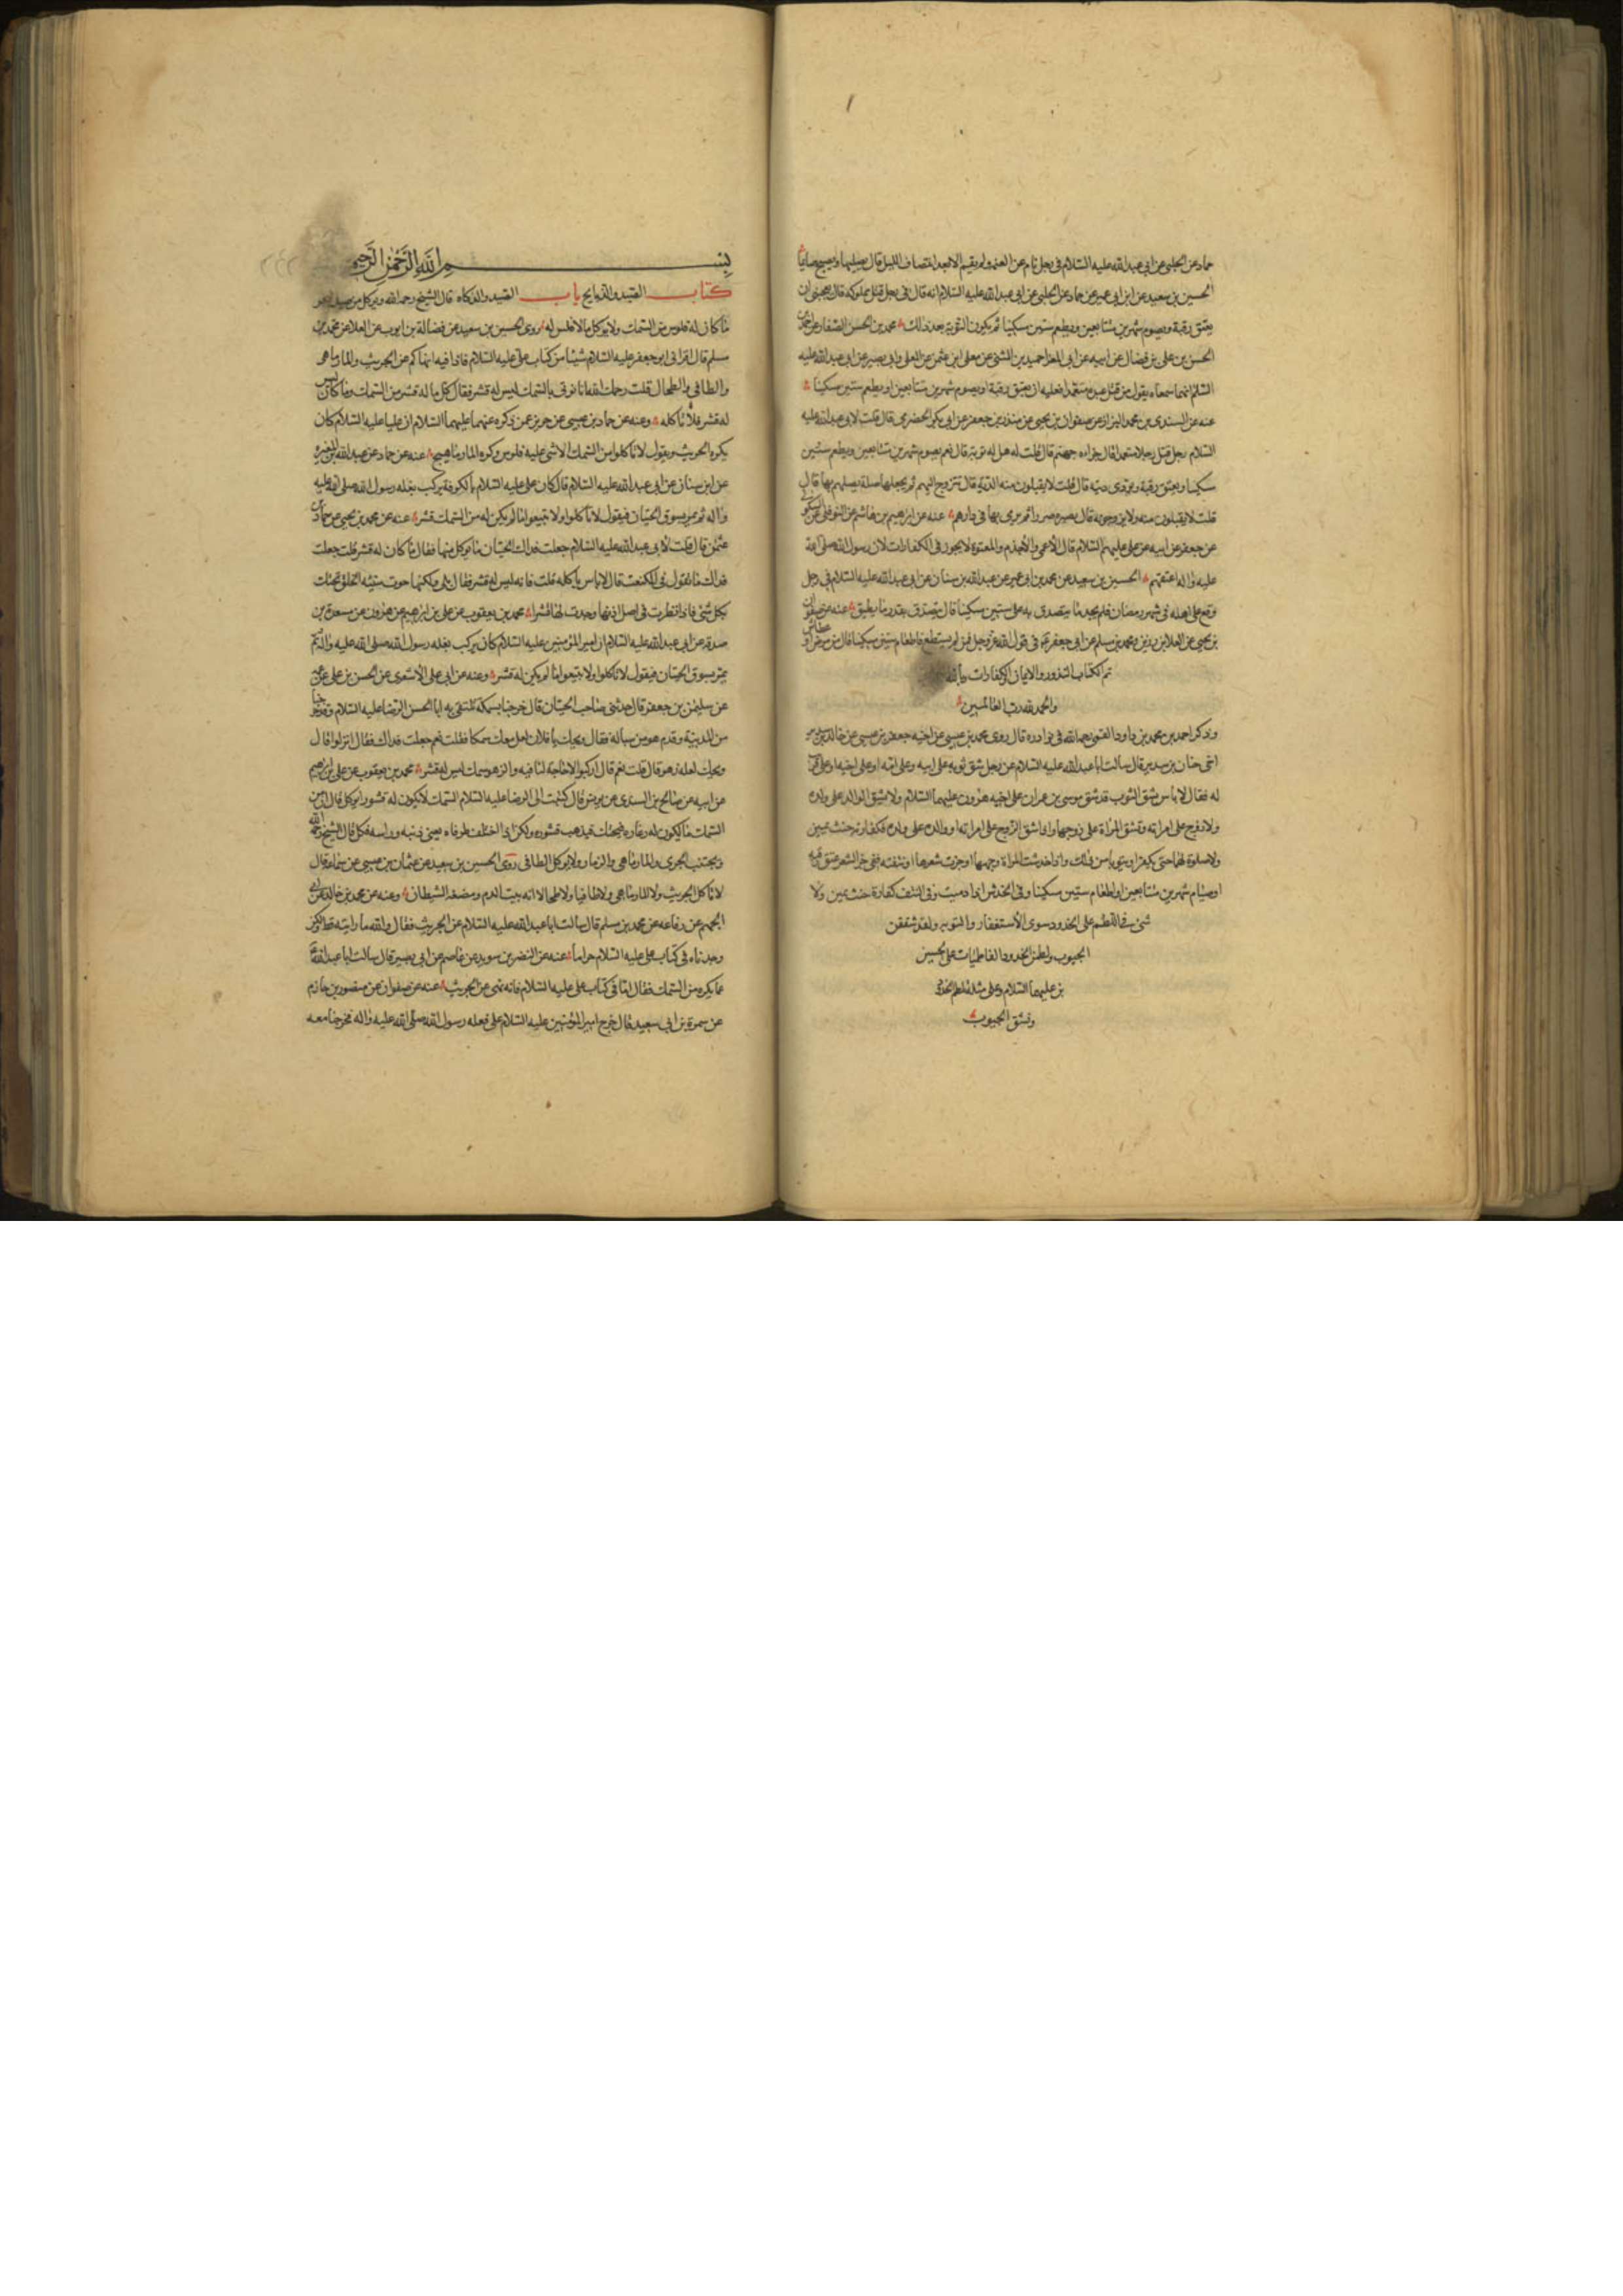 حماد عن الحلبي عن ابي عبد الله عليه السلام في رجل نام عن العتمة ولم يقم الا بعد انتصاف الليل قال يصليها ويصبح صائما
الحسين بن سعيد عن ابن ابي عمير عن حماد عن الحلبي عن ابي عبد الله عليه السلام انه قال في رجل قتل مملوكه قال يعجبني ان
يعتق رقبة ويصوم شهرين متتابعين ويطعم ستين مسكينا ثم يكون التوبة بعد ذلك محمد بن الحسن الصفار عن احمد بن
الحسن بن علي بن فضال عن ابيه عن ابي المغرا حميد بن المثنى عن معلى ابي عثمن عن المعلى وابي بصير عن ابي عبد الله عليه
السلم انهما سمعاه يقول من قتل عبده متعمدا فعليه ان يعتق رقبة او يصوم شهرين متتابعين او يطعم ستين مسكينا
عنه عن السندي بن محمد البزاز عن صفوان بن يحيى عن منذر بن جعفر عن ابي بكر الحضرمي قال قلت لابي عبد الله عليه
السلام رجل قتل رجلا متعمدا قال جزاءه جهنم قال قلت له هل له توبة قال نعم يصوم شهرين متتابعين ويطعم ستين
مسكينا ويعتق رقبة ويؤدى ديته قال قلت لا يقبلون منه الدية قال يتزوج اليهم ثم يجعلها صلة يصلهم بها قال
قلت لا يقبلون منه ولا يزوجونه قال يصره صررا ثم يرمى بها في دارهم عنه عن ابرهيم بن هاشم عن النوفلي عن السكوني
عن جعفر عن ابيه عن علي عليهم السلام قال الاعمى والاجذم والمعتوه لا يجوز في الكفارات لان رسول الله صلى الله
عليه واله اعتقهم الحسين بن سعيد عن محمد بن ابي عمير عن عبد الله بن سنان عن ابي عبد الله عليه السلام في رجل
وقع على اهله في شهر رمضان فلم يجد ما يتصدق به على ستين مسكينا قال يتصدق بقدر ما يطيق عنه عن صفوان
بن يحيى عن العلا بن رزين عن محمد بن مسلم عن ابي جعفر في قول الله عز وجل فمن لم يستطع فاطعام ستين مسكينا قال من مرض او عطاش
تم الكتاب النذور والايمان والكفارات
والحمد لله رب العالمين
وذكر احمد بن محمد بن داود القمي رحمه الله في نوادره قال روى محمد بن عيسى عن اخيه جعفر بن عيسى عن خالد بن سدير
اخي حنان بن سدير قال سالت ابا عبد الله عليه السلام عن رجل شق ثوبه على ابيه وعلى امه او على اخيه او على قريب
له فقال لا باس بشق الثوب قد شق موسى بن عمران على اخيه هرون عليهما السلام ولا يشق الوالد على ولده
ولا زوج على امراته وتشق المراة على زوجها واذا شق الزوج على امراته او والده على ولده فكفارته حنث يمين
ولا صلوة لهما حتى يكفرا ويتوبا من ذلك واذا خدشت المراة وجهها او جزت شعرها او نتفته ففي جز الشعر عتق رقبة
او صيام شهرين متتابعين او اطعام ستين مسكينا وفي الخدش اذا دميت وفي النتف كفارة حنث يمين ولا
شئ في اللطم على الخدود سوى الاستغفار والتوبه ولقد شققن
الجيوب ولطمن الخدود الفاطميات على الحسين
بن علي عليهما السلام وعلى مثله تلطم الخدود
وتشق الجيوب
بسم الله الرحمن الرحيم
كتاب الصيد والذبايح باب الصيد والذكاه قال الشيخ رحمه الله ويؤكل من صيد البحر
ما كان له فلوس من السمك ولا يؤكل ما لا فلس له روى الحسين بن سعيد عن فضالة بن ايوب عن العلا عن محمد بن
مسلم قال اقراني ابو جعفر عليه السلام شيئا من كتاب علي عليه السلام فاذا فيه انهاكم عن الجريث والمارماهي
والطافي والطحال قلت رحمك الله انا نؤتى بالسمك ليس له قشر فقال كل ما له قشر من السمك وما كان ليس
له قشر فلا تاكله وعنه عن حماد بن عيسى عن حريز عمن ذكره عنهما عليهما السلام ان عليا عليه السلام كان
يكره الجريث ويقول لا تاكلوا من السمك الا شئ عليه فلوس وكره المارماهيج عنه عن حماد عن عبد الله بن المغيرة
عن ابن سنان عن ابي عبد الله عليه السلام قال كان علي عليه السلام بالكوفة يركب بغله رسول الله صلى الله عليه
واله ثم يمر بسوق الحيتان فيقول لا تاكلوا ولا تبيعوا ما لم يكن له من السمك قشر عنه عن محمد بن يحيى عن حماد بن
عثمن قال قلت لابي عبد الله عليه السلام جعلت فداك الحيتان ما يوكل منها فقال ما كان له قشر قلت جعلت
فداك ما تقول في الكنعت قال لا باس باكله قلت فانه ليس له قشر فقال بلى ولكنها حوت سيئه الخلق تحتك
بكل شئ فاذا نظرت في اصل اذنها وجدت لها قشرا محمد بن يعقوب عن علي بن ابرهيم عن هرون عن مسعدة بن
صدقه عن ابي عبد الله عليه السلام ان امير المؤمنين عليه السلام كان يركب بغله رسول الله صلى الله عليه واله ثم
يمر بسوق الحيتان فيقول لا تاكلوا ولا تبيعوا ما لم يكن له قشر وعنه عن ابي علي الاشعري عن الحسن بن علي عن عمه
عن سليمن بن جعفر قال حدثني صاحب الحيتان قال خرجنا بسمكة نتلقى به ابا الحسن الرضا عليه السلام وقد خرجنا
من المدينة وقدم هو من سباله فقال ويحك يا فلان لعل معك سمكا فقلت نعم جعلت فداك فقال انزلوا قال
ويحك لعله زهو قال قلت نعم قال اركبوا لا حاجة لنا فيه والزهو سمك ليس له قشر محمد بن يعقوب عن علي بن ابرهيم
عن ابيه عن صالح بن السندي عن يونس قال كتبت الى الرضا عليه السلام السمك لا يكون له قشور ايؤكل قال ان من
السمك ما يكون له زعاره فيحتك فيذهب قشوره ولكن اذا اختلف طرفاه يعني ذنبه وراسه فكل قال الشيخ رحمه الله
ويجتنب الجري والمارماهي والزمار ولا يؤكل الطافي روى الحسين بن سعيد عن عثمان بن عيسى عن سماعه قال
لا تاكل الجريث ولا المارماهي ولا طافيا ولا طحالا لانه بيت الدم ومضغة الشيطان وعنه عن محمد بن خالد عن ابي
الجهم عن رفاعه عن محمد بن مسلم قال سالت ابا عبد الله عليه السلام عن الجريث فقال والله ما رايته قط ولكن
وجدناه في كتاب علي عليه السلام حراما عنه عن النضر بن سويد عن عاصم عن ابي بصير قال سالت ابا عبد الله
عما يكره من السمك فقال اما في كتاب علي عليه السلام فانه نهى عن الجريث عنه عن صفوان عن منصور بن حازم
عن سمرة بن ابي سعيد قال خرج امير المؤمنين عليه السلام على بغله رسول الله صلى الله عليه واله فخرجنا معه